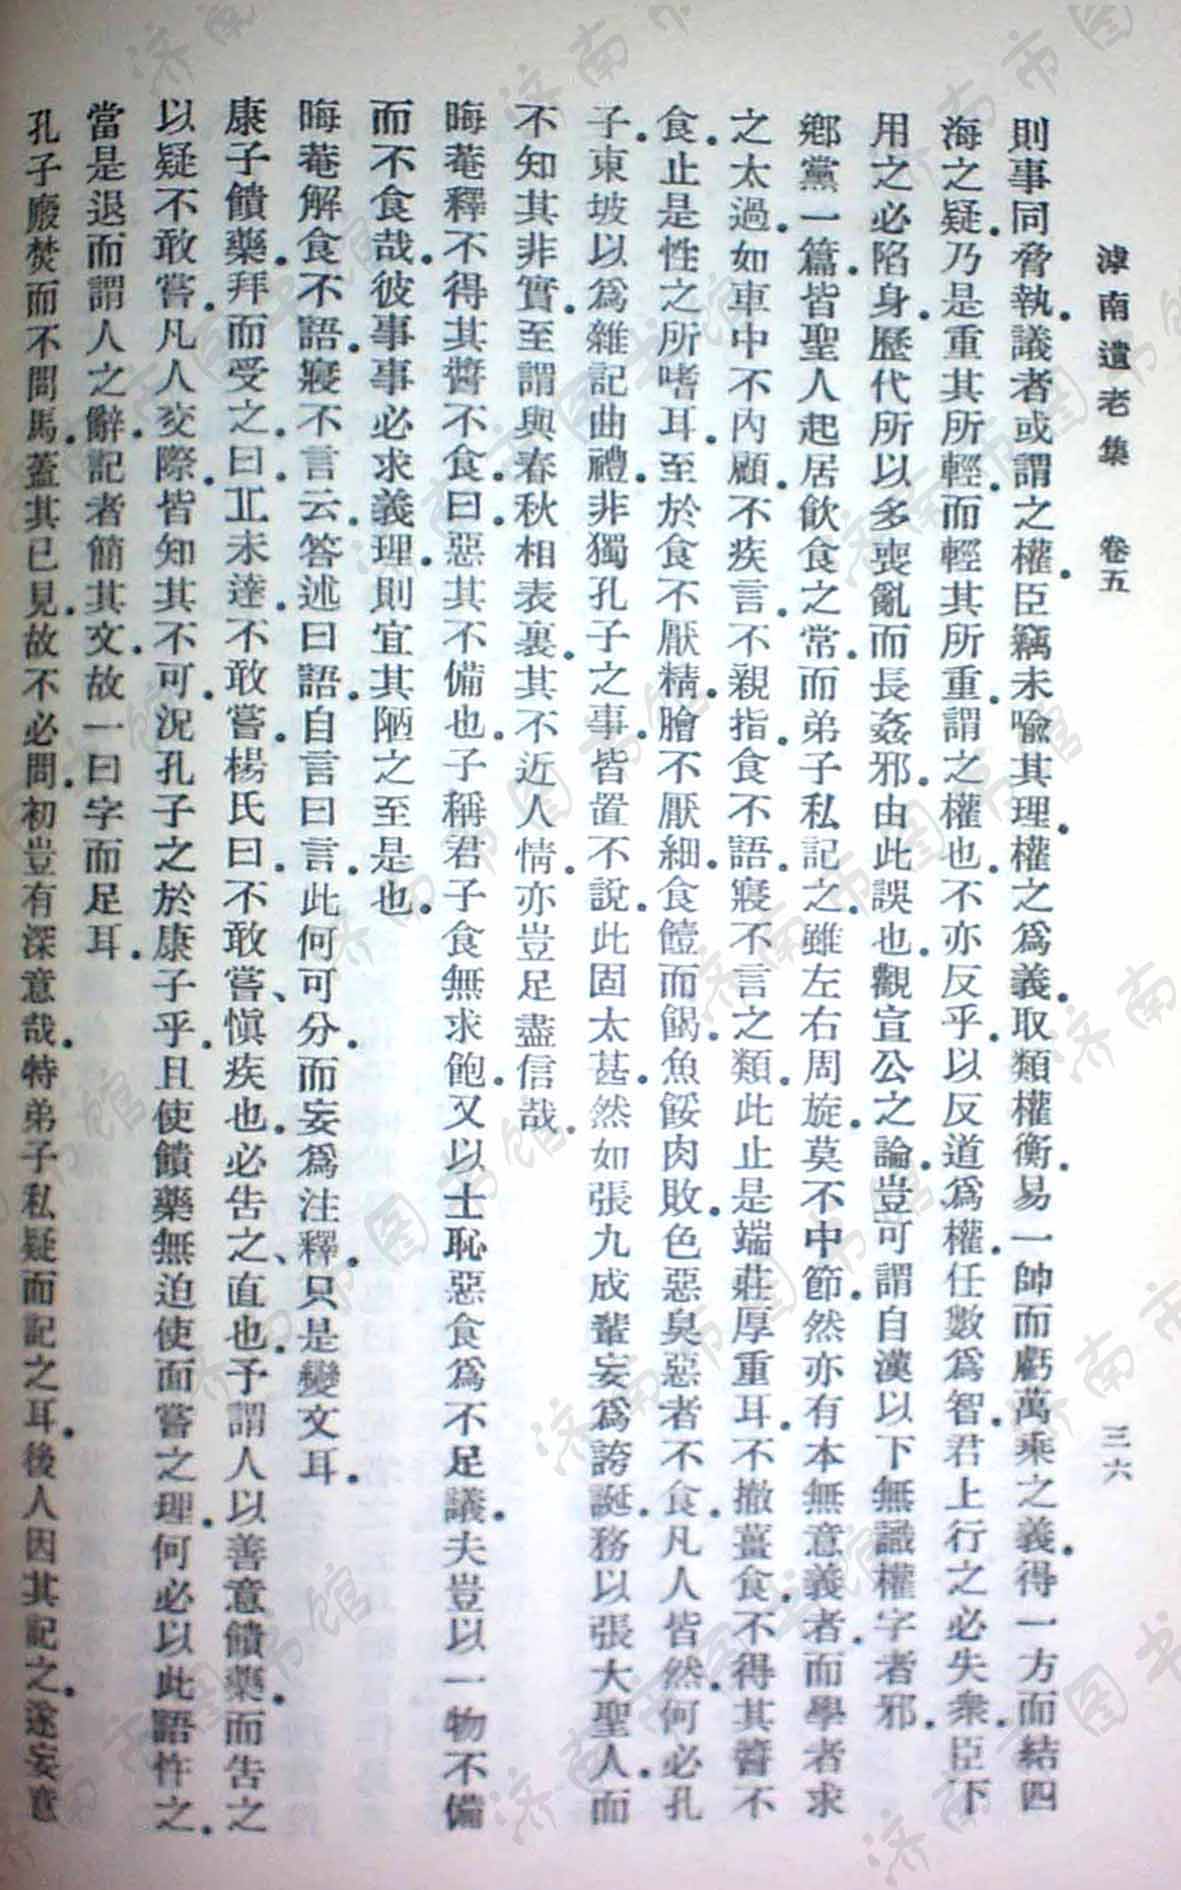 滹南遺老集　卷五　三六
則事同脅執。議者或謂之權。臣竊未喩其理。權之爲義。取類權衡。易一帥而虧萬乘之義。得一方而結四
海之疑。乃是重其所輕。而輕其所重。謂之權也。不亦反乎。以反道爲權。任數爲智。君上行之必失衆。臣下
用之必陷身。歷代所以多喪亂而長姦邪。由此誤也。觀宣公之論。豈可謂自漢以下無識權字者邪。
鄉黨一篇。皆聖人起居飲食之常。而弟子私記之。雖左右周旋。莫不中節。然亦有本無意義者。而學者求
之太過。如車中不內顧。不疾言。不親指。食不語。寢不言之類。此止是端莊厚重耳。不撤薑食。不得其醬不
食。止是性之所嗜耳。至於食不厭精。膾不厭細。食饐而餲。魚餒肉敗。色惡臭惡者不食。凡人皆然。何必孔
子。東坡以爲雜記曲禮。非獨孔子之事。皆置不說。此固太甚。然如張九成輩妄爲誇誕。務以張大聖人。而
不知其非實。至謂與春秋相表裏。其不近人情。亦豈足盡信哉。
晦菴釋不得其醬不食。曰。惡其不備也。子稱君子食無求飽。又以士恥惡食爲不足議。夫豈以一物不備
而不食哉。彼事事必求義理。則宜其陋之至是也。
晦菴解食不語。寢不言云。答述曰語。自言曰言。此何可分。而妄爲注釋。只是變文耳。
康子饋藥。拜而受之。曰。丘未達。不敢嘗。楊氏曰。不敢嘗、愼疾也。必告之、直也。予謂人以善意饋藥。而告之
以疑不敢嘗。凡人交際。皆知其不可。況孔子之於康子乎。且使饋藥無迫使面嘗之理。何必以此語忤之。
當是退而謂人之辭。記者簡其文。故一曰字而足耳。
孔子廄焚而不問馬。蓋其已見。故不必問。初豈有深意哉。特弟子私疑而記之耳。後人因其記之。遂妄意